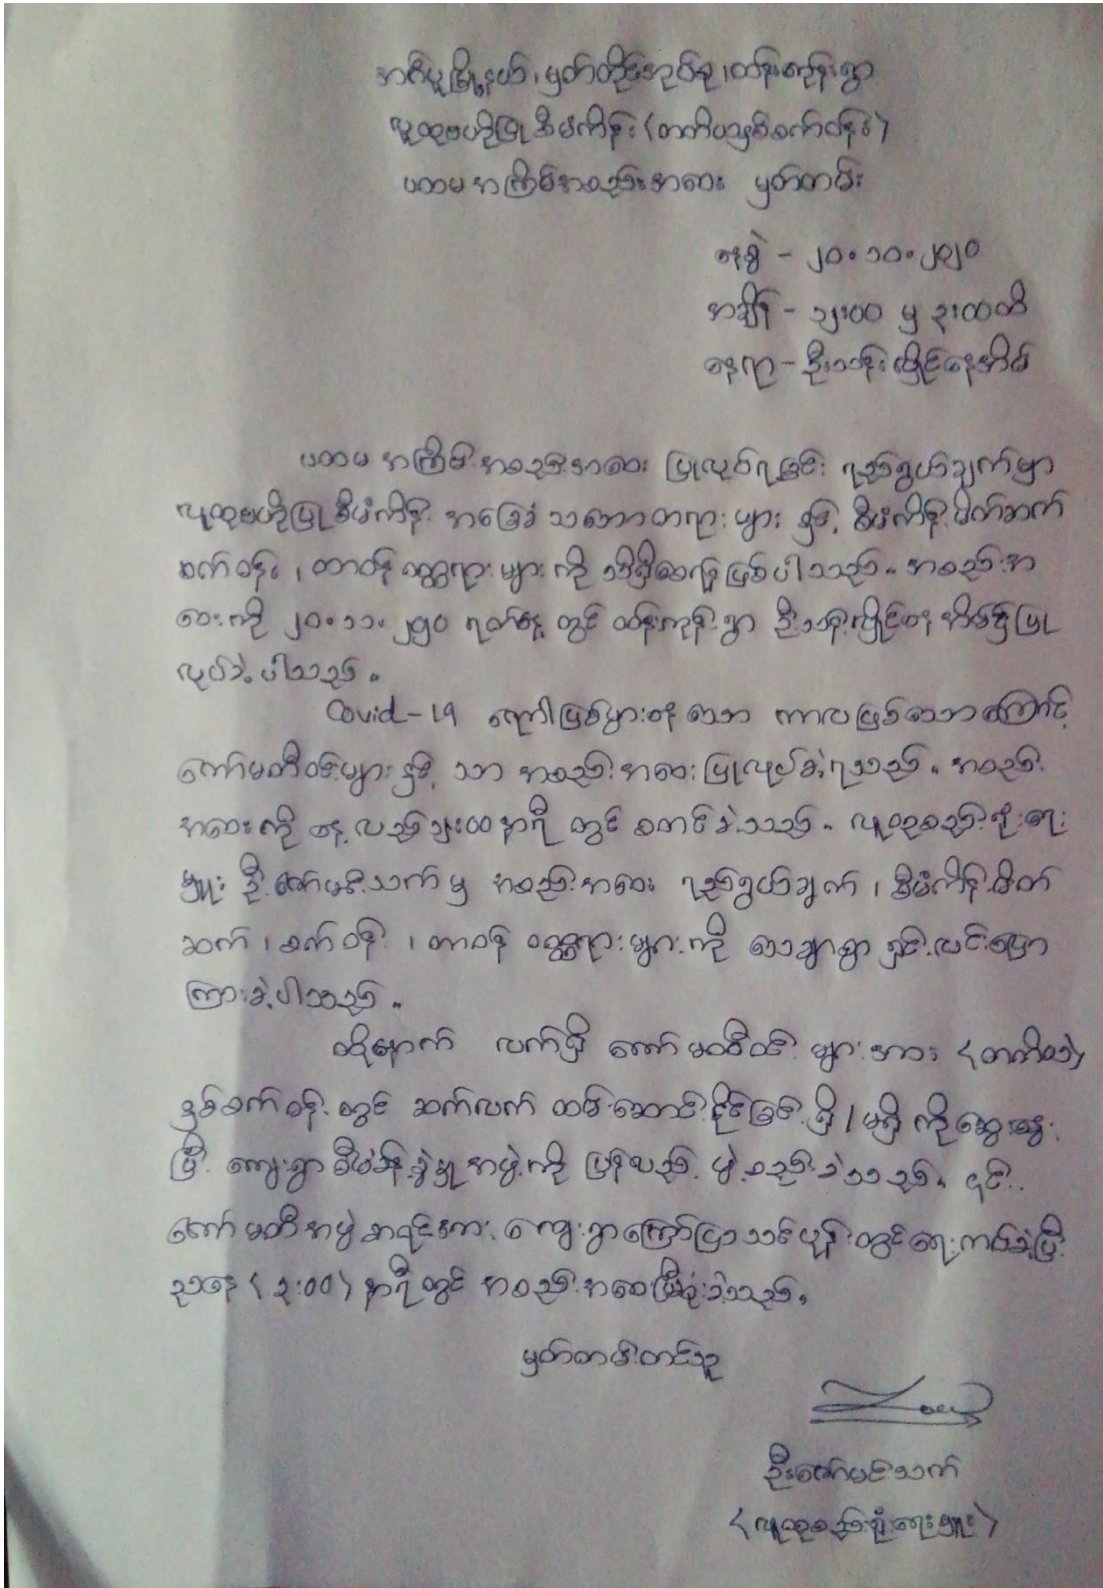 မြို့နယ်၊ မှတ်တိုင်အုပ်စု၊ ထန်းကုန်းရွာ
လူထုဗဟိုပြုစီမံကိန်း (တတိယနှစ်စက်ဝန်း)
ပထမအကြိမ်အစည်းအဝေး မှတ်တမ်း
နေ့စွဲ - ၂၀.၁၀.၂၀၂၀
အချိန် - ၁၂:၀၀ မှ ၃:ထိ
နေရာ - ဦးသန်းလှိုင်နေအိမ်
ပထမအကြိမ် အစည်းအဝေး ပြုလုပ်ရခြင်း ရည်ရွယ်ချက်မှာ
လူထုဗဟိုပြုစီမံကိန်း အခြေခံ သဘောတရားများ နှင့် စီမံကိန်းမိတ်ဆက်
စက်ဝန်း၊ တာဝန် ဝတ္တရားများ ကို သိရှိစေရန် ဖြစ်ပါသည်။ အစည်းအ
ဝေးကို ၂၀.၁၁.၂၀၂၀ ရက်နေ့ တွင် ထန်းကုန်းရွာ ဦးသန်းလှိုင်နေအိမ်၌ ပြု
လုပ်ခဲ့ပါသည်။
Covid-19 ရောဂါဖြစ်ပွားနေသော ကာလဖြစ်သောကြောင့်
ကော်မတီဝင်များ နှင့် သာ အစည်းအဝေး ပြုလုပ်ခဲ့ရသည်။ အစည်း
အဝေးကို နေ့လည်၁၂:၀၀နာရီ တွင် စတင်ခဲ့သည်။ လူထုစည်းရုံးရေး
မှူး ဦးဇော်မင်းသက်မှ အစည်းအဝေး ရည်ရွယ်ချက်၊ စီမံကိန်းမိတ်
ဆက်၊ စက်ဝန်း၊ တာဝန် ဝတ္တရားများကို သေချာစွာ ရှင်းလင်းပြော
ကြားခဲ့ပါသည်။
ထို့နောက် လက်ရှိ ကော်မတီဝင်များအား (တတိယ)
နှစ်စက်ဝန်းတွင် ဆက်လက် ထမ်းဆောင်နိုင်ခြင်း ရှိ/မရှိ ကိုဆွေးနွေး
ပြီး ကျေးရွာစီမံခန့်ခွဲမှုအဖွဲ့ကို ပြန်လည် ဖွဲ့စည်းခဲ့သည်။ ၎င်း
ကော်မတီအဖွဲ့စာရင်းအား ကျေးရွာကြော်ငြာသင်ပုန်းတွင်ရေးကပ်ခဲ့ပြီး
ညနေ (၃:၀၀) နာရီတွင် အစည်းအဝေးပြီးဆုံးခဲ့သည်။
မှတ်တမ်းတင်သူ
ဦးဇော်မင်းသက်
(လူထုစည်းရုံးရေးမှူး)